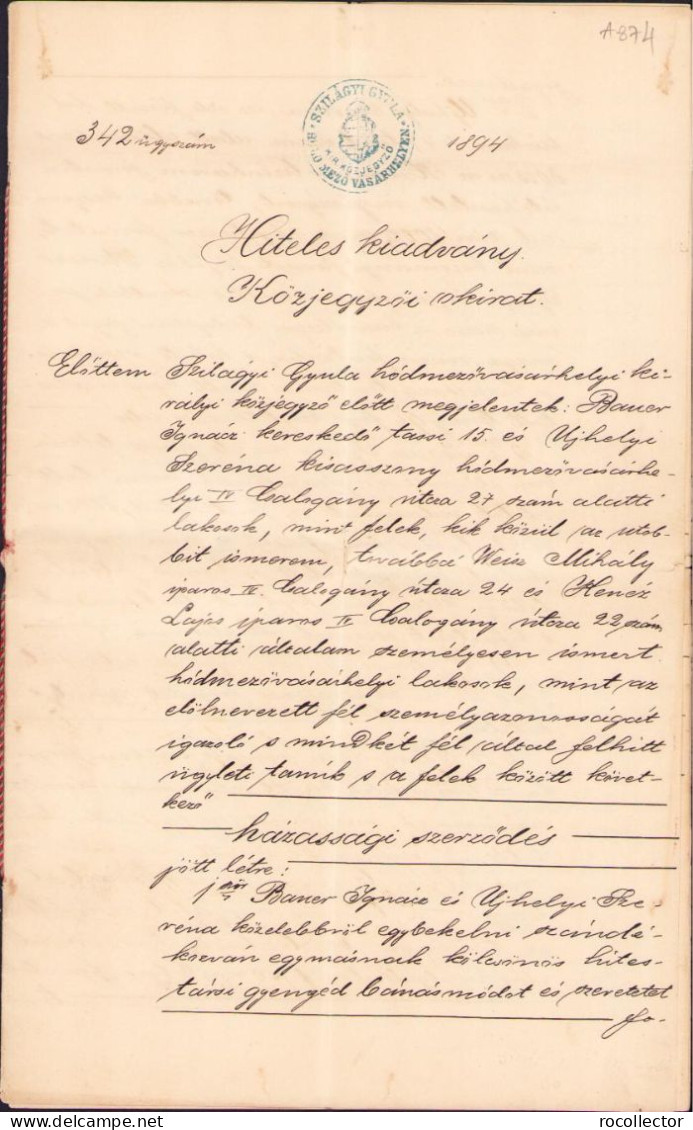 A874
SZILÁGYI GYULA
KIR. KÖZJEGYZŐ
HÓD MEZŐ VÁSÁRHELYEN
342 ügyszám
1894
Hiteles kiadvány.
Közjegyzői okirat.
Előttem Szilágyi Gyula hódmezővásárhelyi ki-
rályi közjegyző előtt megjelentek: Bauer
Ignácz kereskedő tassi 15. és Ujhelyi
Szeréna kisasszony hódmezővásárhe-
lyi IV Csalogány útcza 27 szám alatti
lakosok, mint felek, kik közül az utób-
bit ismerem, továbbá Weisz Mihály
iparos IV. Csalogány útcza 24 és Kenéz
Lajos iparos IV Csalogány útcza 22 szám
alatti általam személyesen ismert
hódmezővásárhelyi lakosok, mint az
elölnevezett fél személyazonosságát
igazoló s mindkét fél által felhitt
ügyleti tanúk s a felek között követ-
kező
házassági szerződés
jött létre:
Bauer Ignácz és Ujhelyi Sze-
réna közelebbről egybekelni szándé-
kozván egymásnak kölcsönös hites-
társi gyengéd bánásmódot és szeretetet
fo-
delcampe.net
rocollector